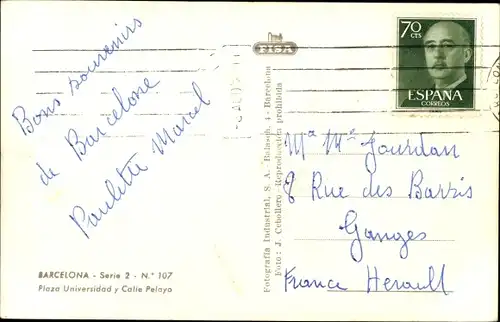 Bons souvenirs
de Barcelone
Paulette Marcel
BARCELONA - Serie 2 - N.° 107
Plaza Universidad y Calle Pelayo
FISA
Fotografía Industrial, S. A. - Barcelona
Foto: J. Cebollero - Reproducción prohibida
70
CTS
ESPAÑA
CORREOS
Mr Me Jourdan
8 Rue des Barris
Ganges
France Herault